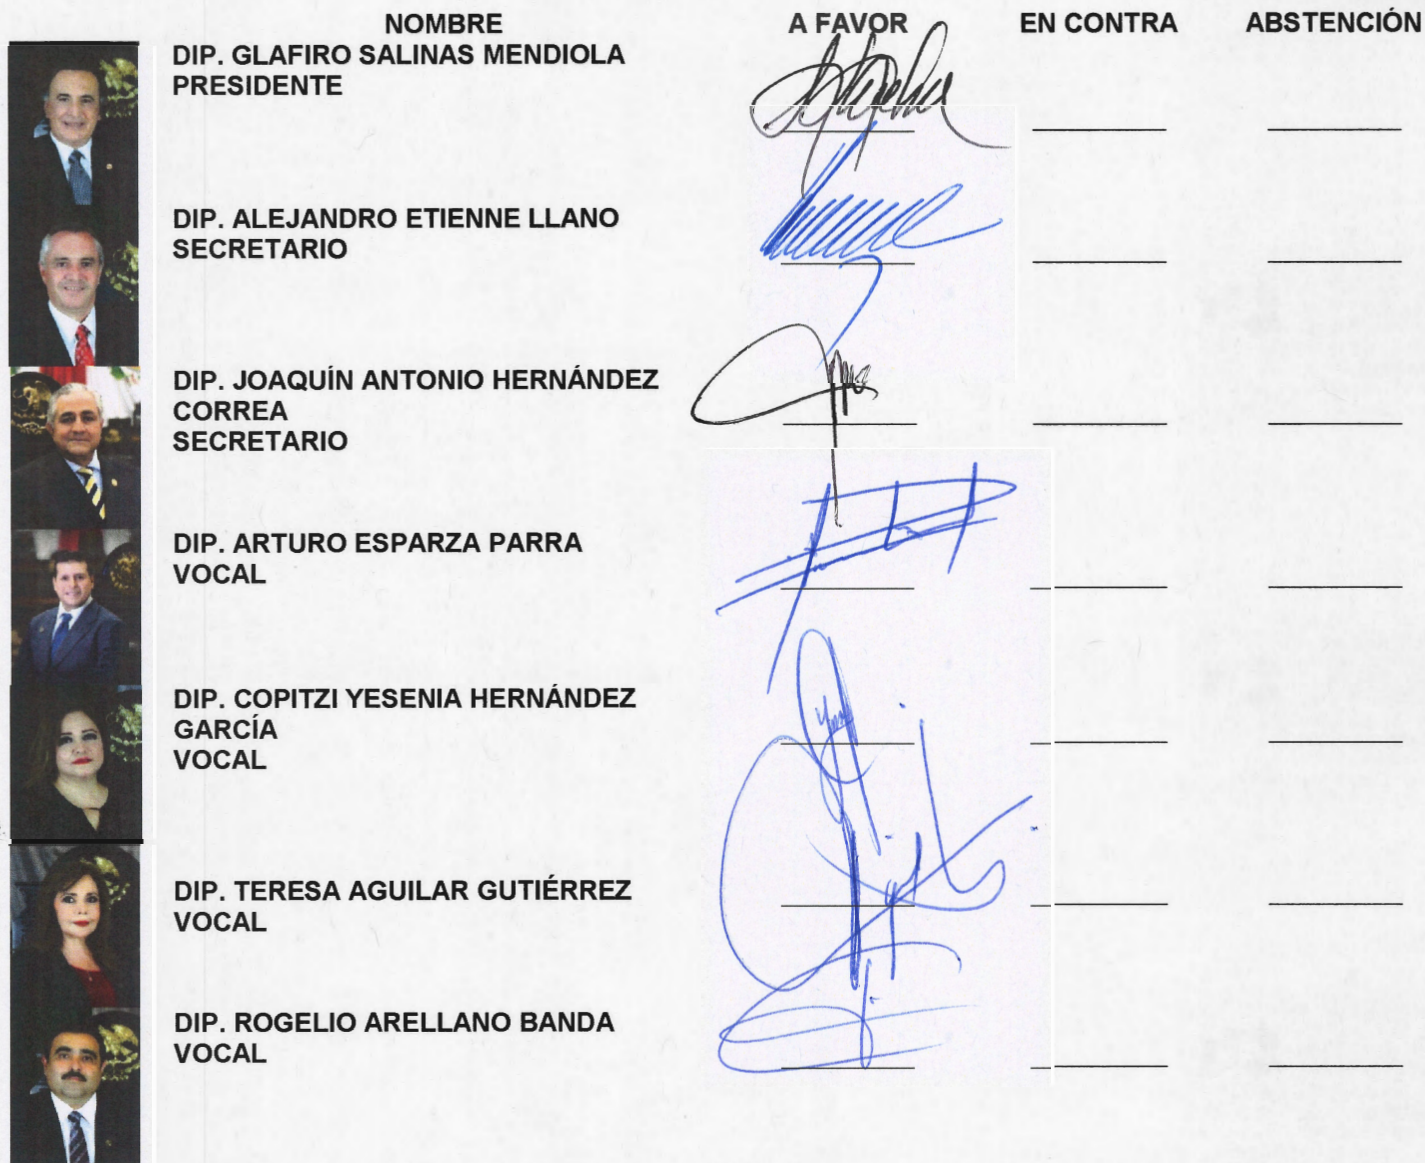 NOMBRE A FAVOR EN CONTRA ABSTENCIÓN
DIP. GLAFIRO SALINAS MENDIOLA
PRESIDENTE
DIP. ALEJANDRO ETIENNE LLANO
SECRETARIO
DIP. JOAQUÍN ANTONIO HERNÁNDEZ
CORREA
SECRETARIO
DIP. ARTURO ESPARZA PARRA
VOCAL
DIP. COPITZI YESENIA HERNÁNDEZ
GARCÍA
VOCAL
DIP. TERESA AGUILAR GUTIÉRREZ
VOCAL
DIP. ROGELIO ARELLANO BANDA
VOCAL